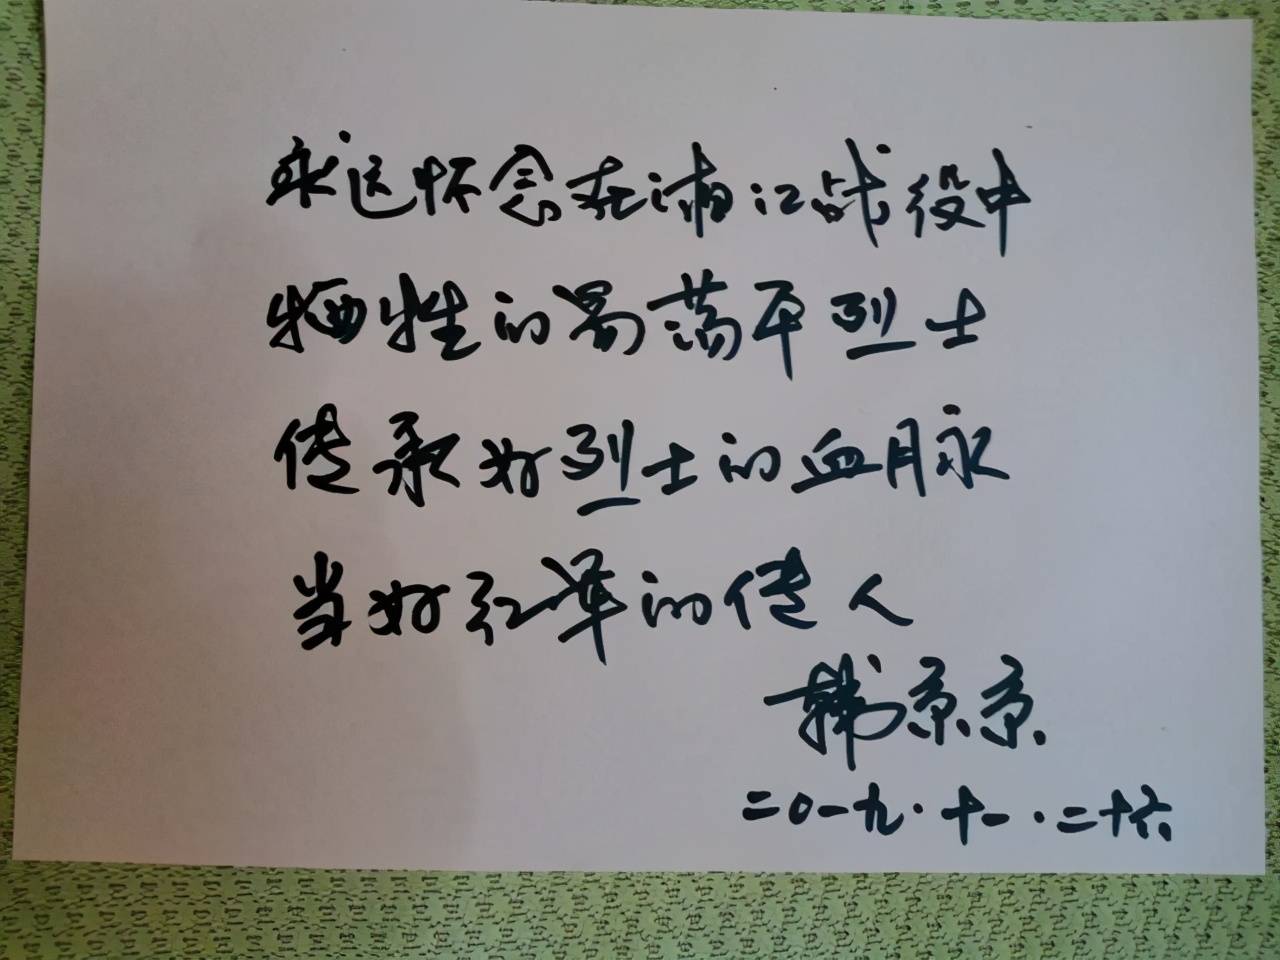 永远怀念在湘江战役中
牺牲的易荡平烈士
传承好烈士的血脉
当好红军的传人
韩京京
二〇一九·十一·二十六